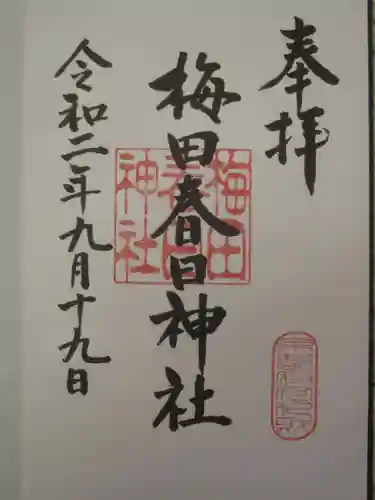 奉拝
梅田春日神社
梅田
春日
神社
令和二年九月十九日